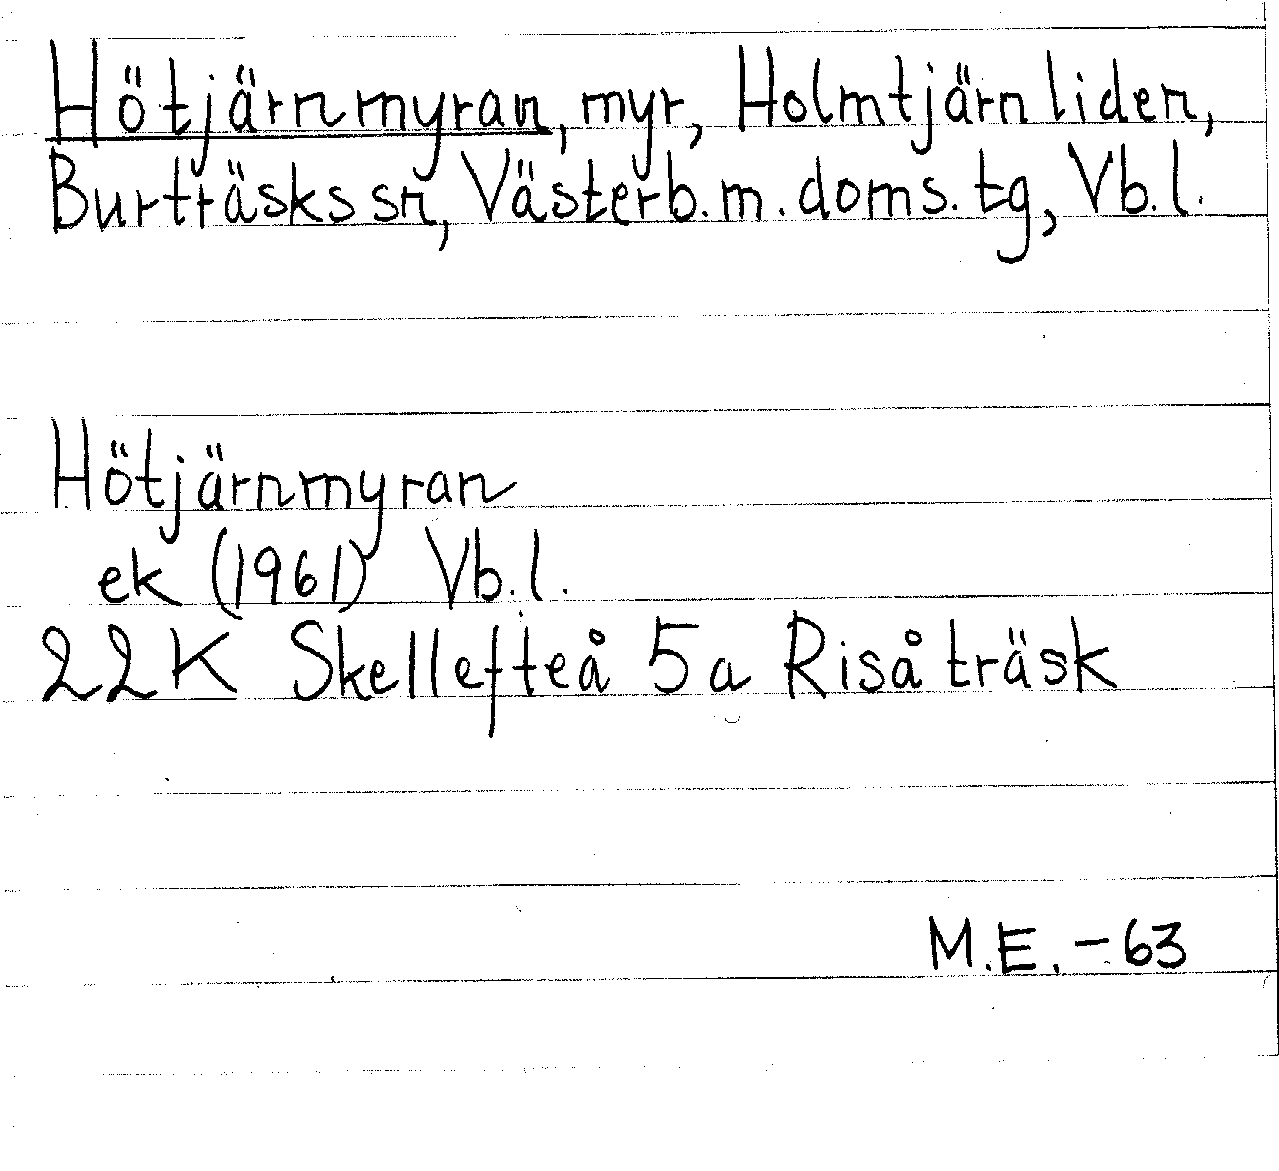 Hötjärnmyran, myr, Holmtjärnliden,
Burträsks sn, Västerb.m. doms. tg, Vb.l.
Hötjärnmyran
ek (1961) Vb.l.
22K Skellefteå 5a Risåträsk
M.E. -63